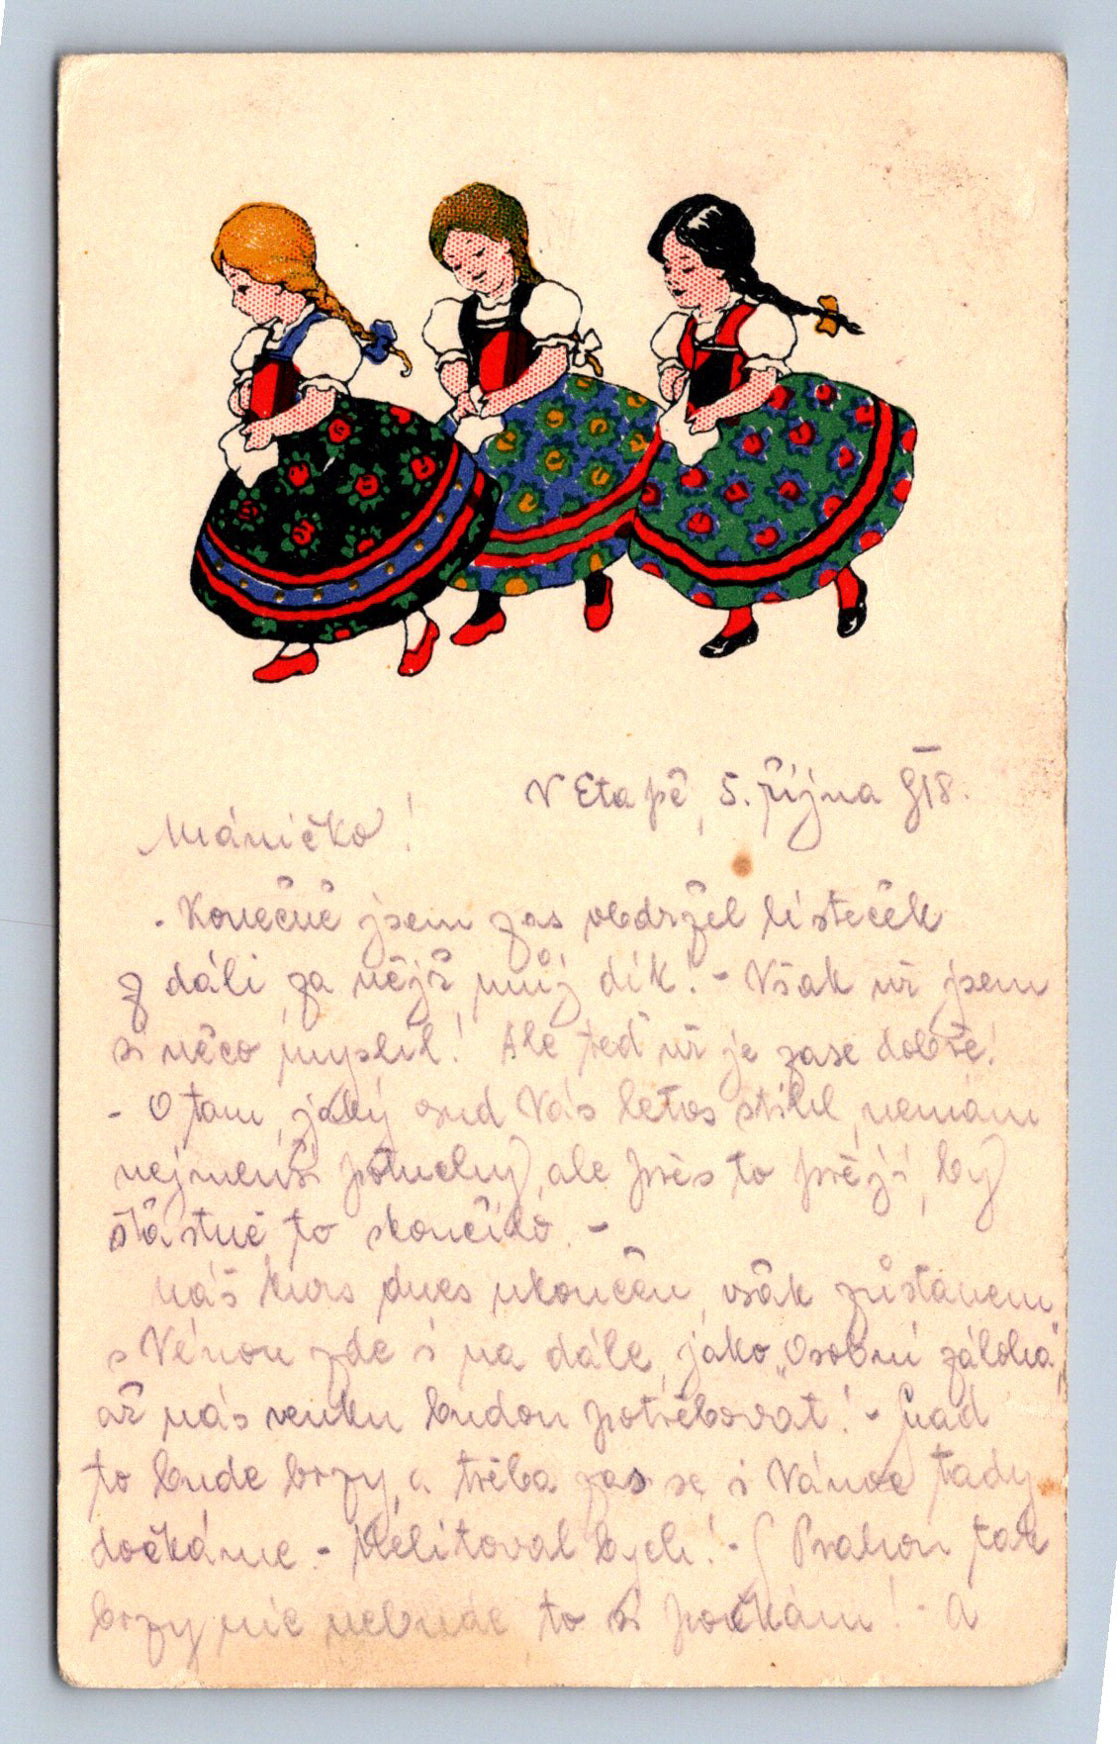 V Etapě, 5. října 918.
Máničko!
- Konečně jsem zas obdržel lísteček
z dáli, za nějž můj dík! - Však už jsem
si něco myslil! Ale teď už je zase dobře!
- O tom, jaký osud Vás letos stihl, nemám
nejmenší potuchy, ale přes to přeji, by
šťastně to skončilo. -
Náš kurs dnes ukončen, však zůstanem
s Vénou zde i na dále, jako "Osobní záloha",
až nás venku budou potřebovat! - Snad
to bude brzy, a třeba zas se i Vánoc tady
dočkáme. - Nelitoval bych! - S Prahou tak
brzy nic nebude, to si počkám! - A